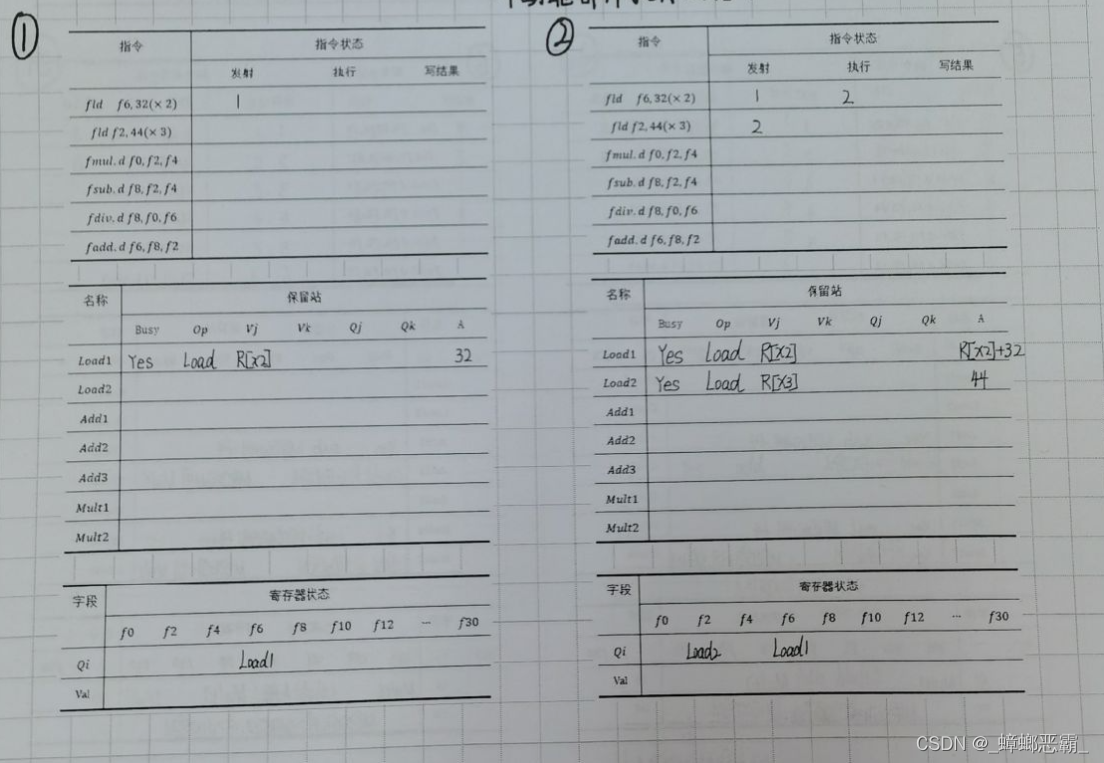 ①
指令 指令状态
发射 执行 写结果
fld f6,32(×2) 1
fld f2,44(×3)
fmul.d f0,f2,f4
fsub.d f8,f2,f4
fdiv.d f8,f0,f6
fadd.d f6,f8,f2
名称 保留站
Busy Op Vj Vk Qj Qk A
Load1 Yes Load R[x2] 32
Load2
Add1
Add2
Add3
Mult1
Mult2
字段 寄存器状态
f0 f2 f4 f6 f8 f10 f12 … f30
Qi Load1
Val
②
指令 指令状态
发射 执行 写结果
fld f6,32(×2) 1 2
fld f2,44(×3) 2
fmul.d f0,f2,f4
fsub.d f8,f2,f4
fdiv.d f8,f0,f6
fadd.d f6,f8,f2
名称 保留站
Busy Op Vj Vk Qj Qk A
Load1 Yes Load R[x2] R[x2]+32
Load2 Yes Load R[x3] 44
Add1
Add2
Add3
Mult1
Mult2
字段 寄存器状态
f0 f2 f4 f6 f8 f10 f12 … f30
Qi Load2 Load1
Val
CSDN @_蟑螂恶霸_